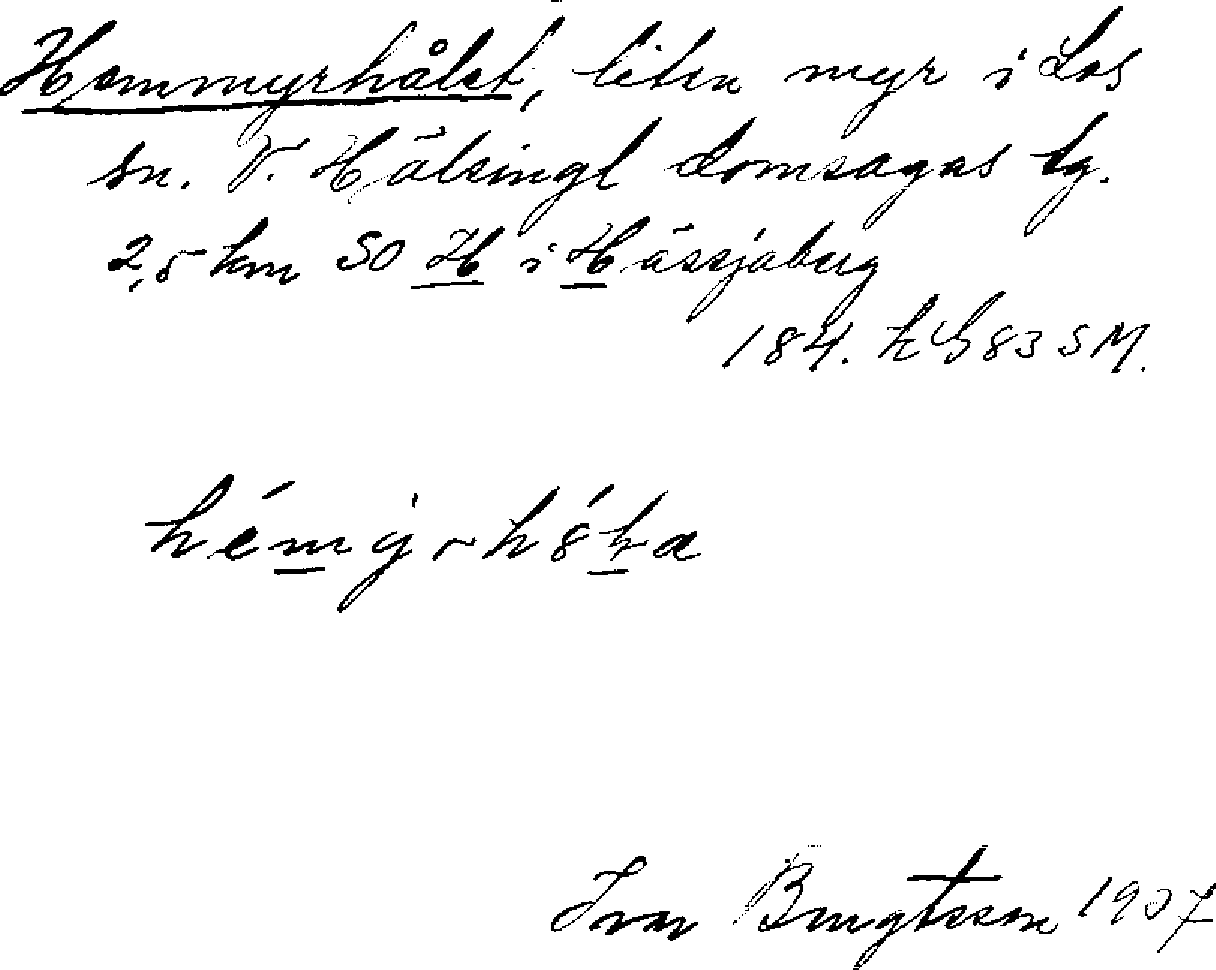 Hemmyrhålet, liten myr i Los
sn. V. Hälsingl domsagas tg.
2,5 km SO H i Hässjaberg
184. 83 SM.
Ivar Bengtsson 1907